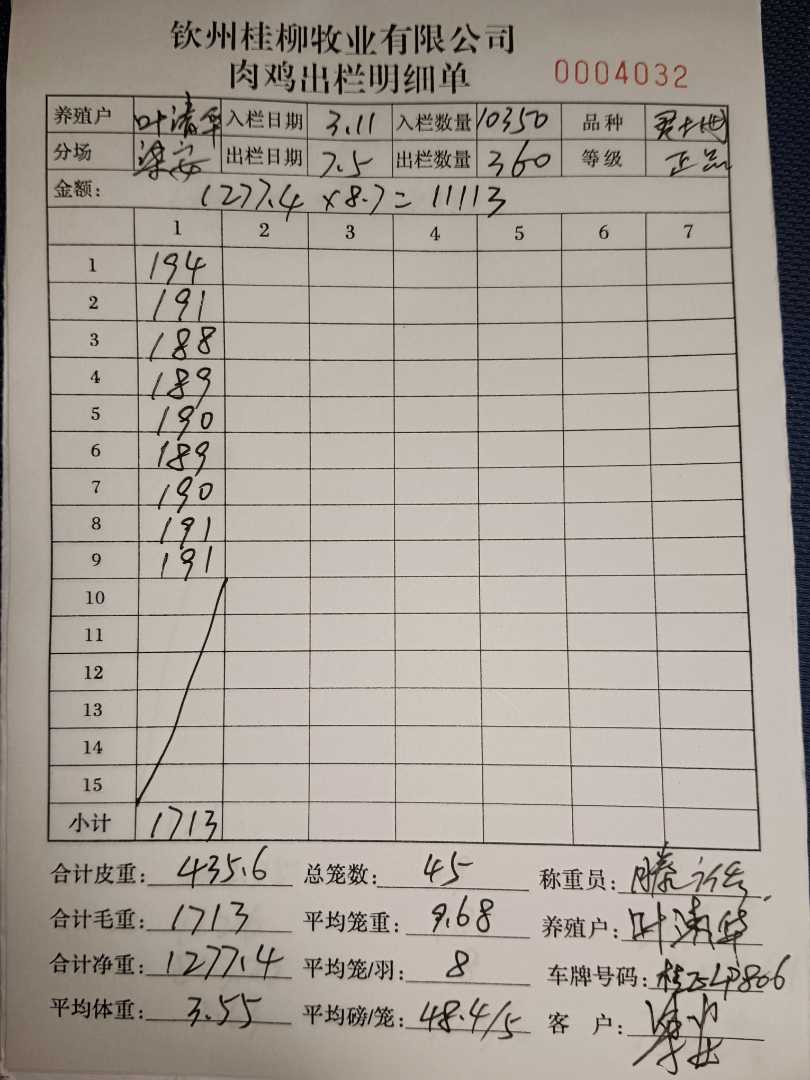 钦州桂柳牧业有限公司
肉鸡出栏明细单 0004032
养殖户 叶清华 入栏日期 3.11 入栏数量 10350 品种
分场 梁安 出栏日期 7.5 出栏数量 360 等级 正品
金额: 1277.4 x8.7= 11113
1 2 3 4 5 6 7
1 194
2 191
3 188
4 189
5 190
6 189
7 190
8 191
9 191
10
11
12
13
14
15
小计 1713
合计皮重: 435.6 总笼数: 45 称重员:
合计毛重: 1713 平均笼重: 9.68 养殖户: 叶清华
合计净重: 1277.4 平均笼/羽: 8 车牌号码:
平均体重: 3.55 平均磅/笼: 48.4/5 客 户: